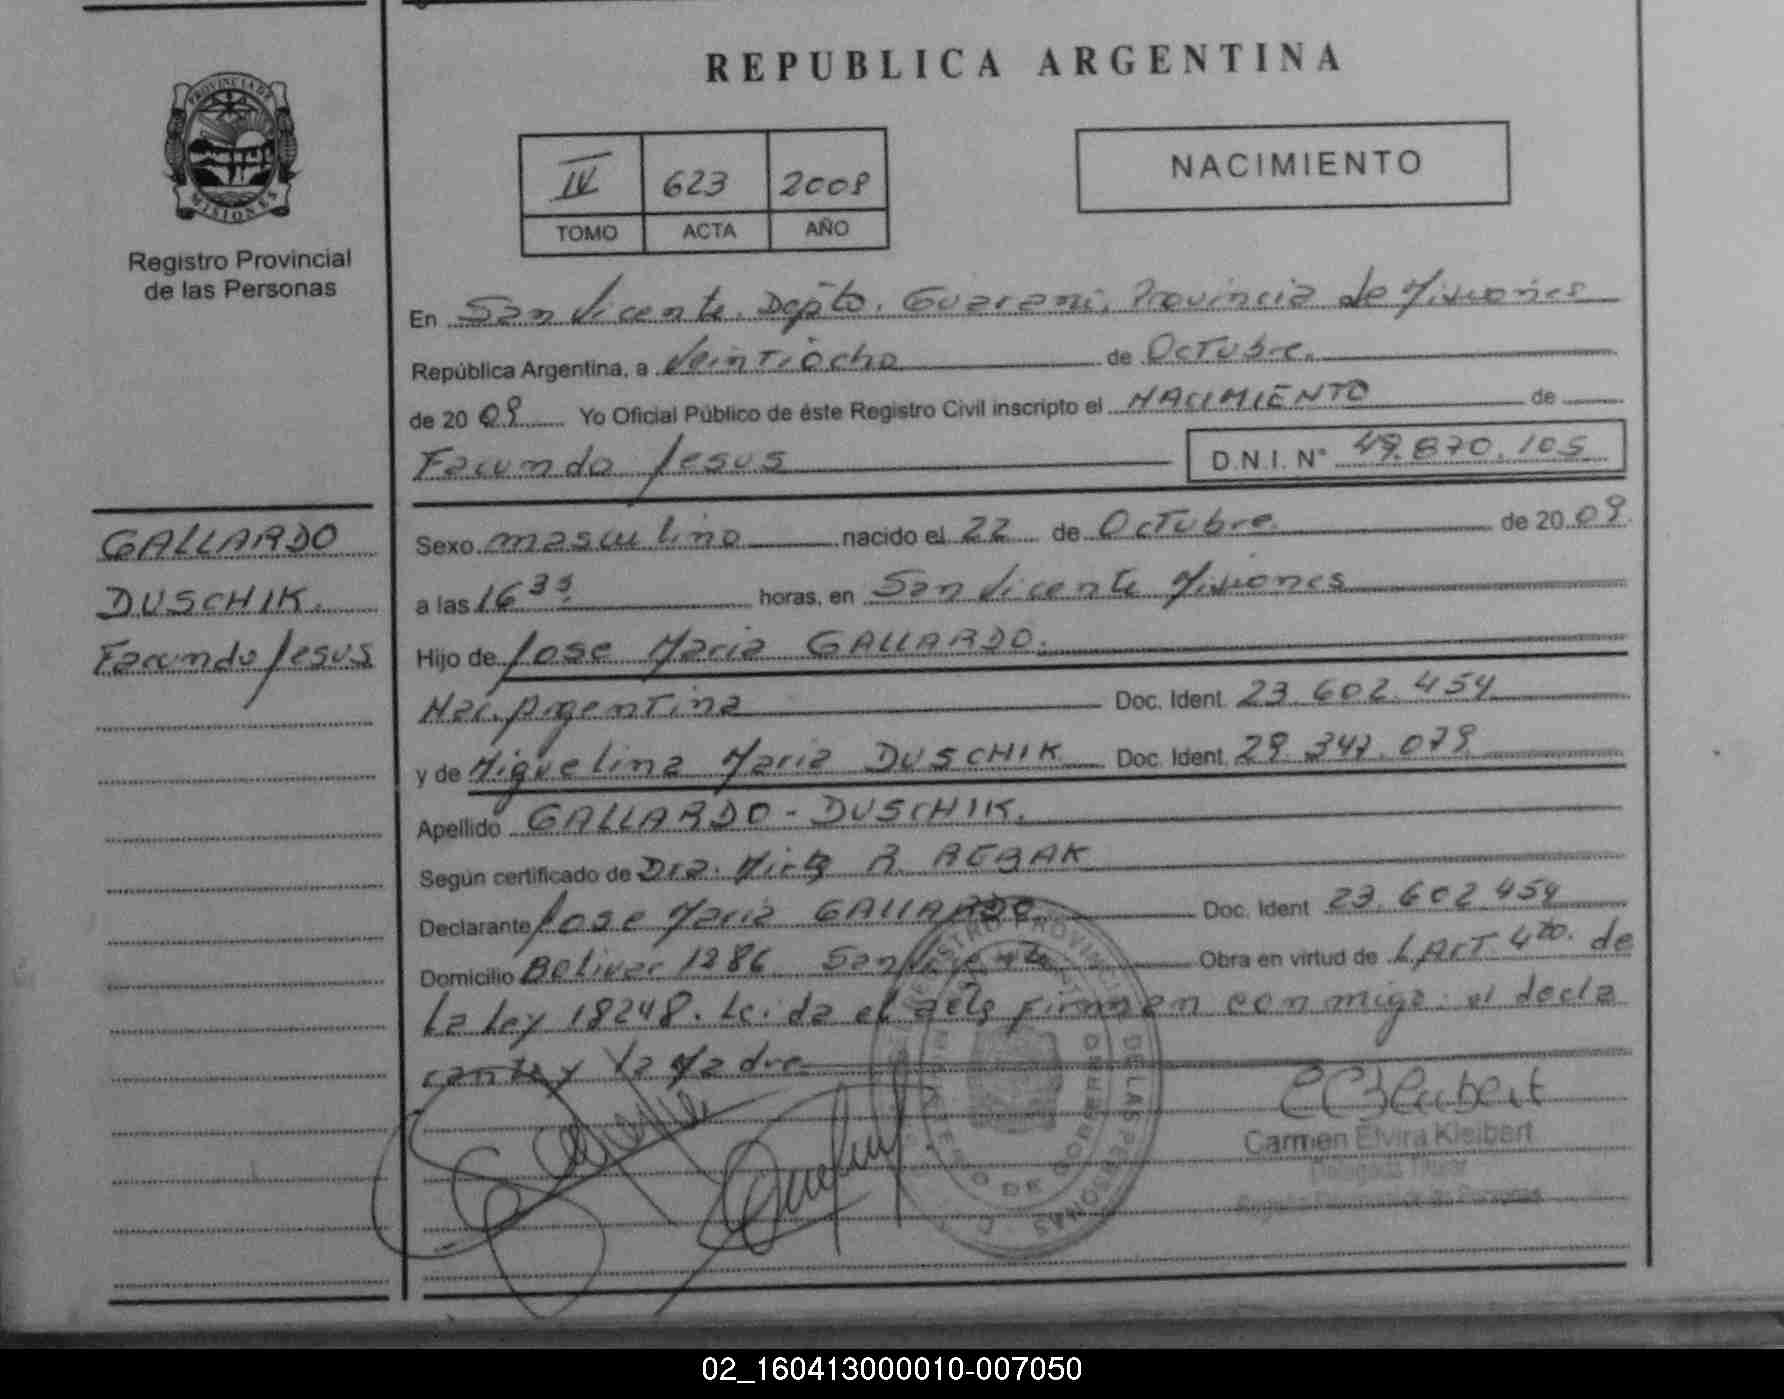 REPUBLICA ARGENTINA
PROVINCIA DE
MISIONES
Registro Provincial
de las Personas
IV 623 2009
TOMO ACTA AÑO
NACIMIENTO
En San Vicente. Depto. Guarani, Provincia de Misiones
República Argentina, a Veintiocho de Octubre.
de 20 09 Yo Oficial Público de éste Registro Civil inscripto el NACIMIENTO de
Facundo Jesus D.N.I. N° 49.870.105
GALLARDO
DUSCHIK.
Facundo Jesus
Sexo masculino nacido el 22 de Octubre. de 20 09
a las 16 33 horas, en San Vicente Misiones
Hijo de Jose Maria GALLARDO.
Nac. Argentina Doc. Ident. 23.602.454
y de Miguelina Maria DUSCHIK Doc. Ident. 29.347.079
Apellido GALLARDO - DUSCHIK.
Según certificado de Dra. R.
Declarante Jose Maria GALLARDO Doc. Ident 23.602.454
Domicilio Bolivar 1286 San Vicente Obra en virtud de L ART. 4to. de
La Ley 18248. Leida el acta firman conmigo el decla
rante y la Madre
REGISTRO PROVINCIAL DE LAS PERSONAS
MINISTERIO DE GOBIERNO
Carmen Elvira Kleibert
Delegada Titular
02_160413000010-007050